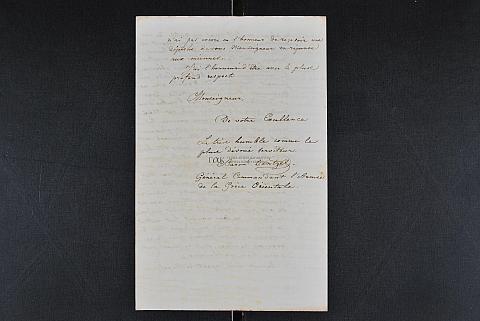 n'ai pas encore eu l'honneur de recevoir une
dépêche de vous Monseigneur en réponse
aux miennes.
J'ai l'honneur d'être avec le plus
profond respect
Monseigneur
De votre Excellence
Le très humble comme le
plus dévoué serviteur
Baron Dentzel.
Général Commandant l'Armée
de la Grèce Orientale.